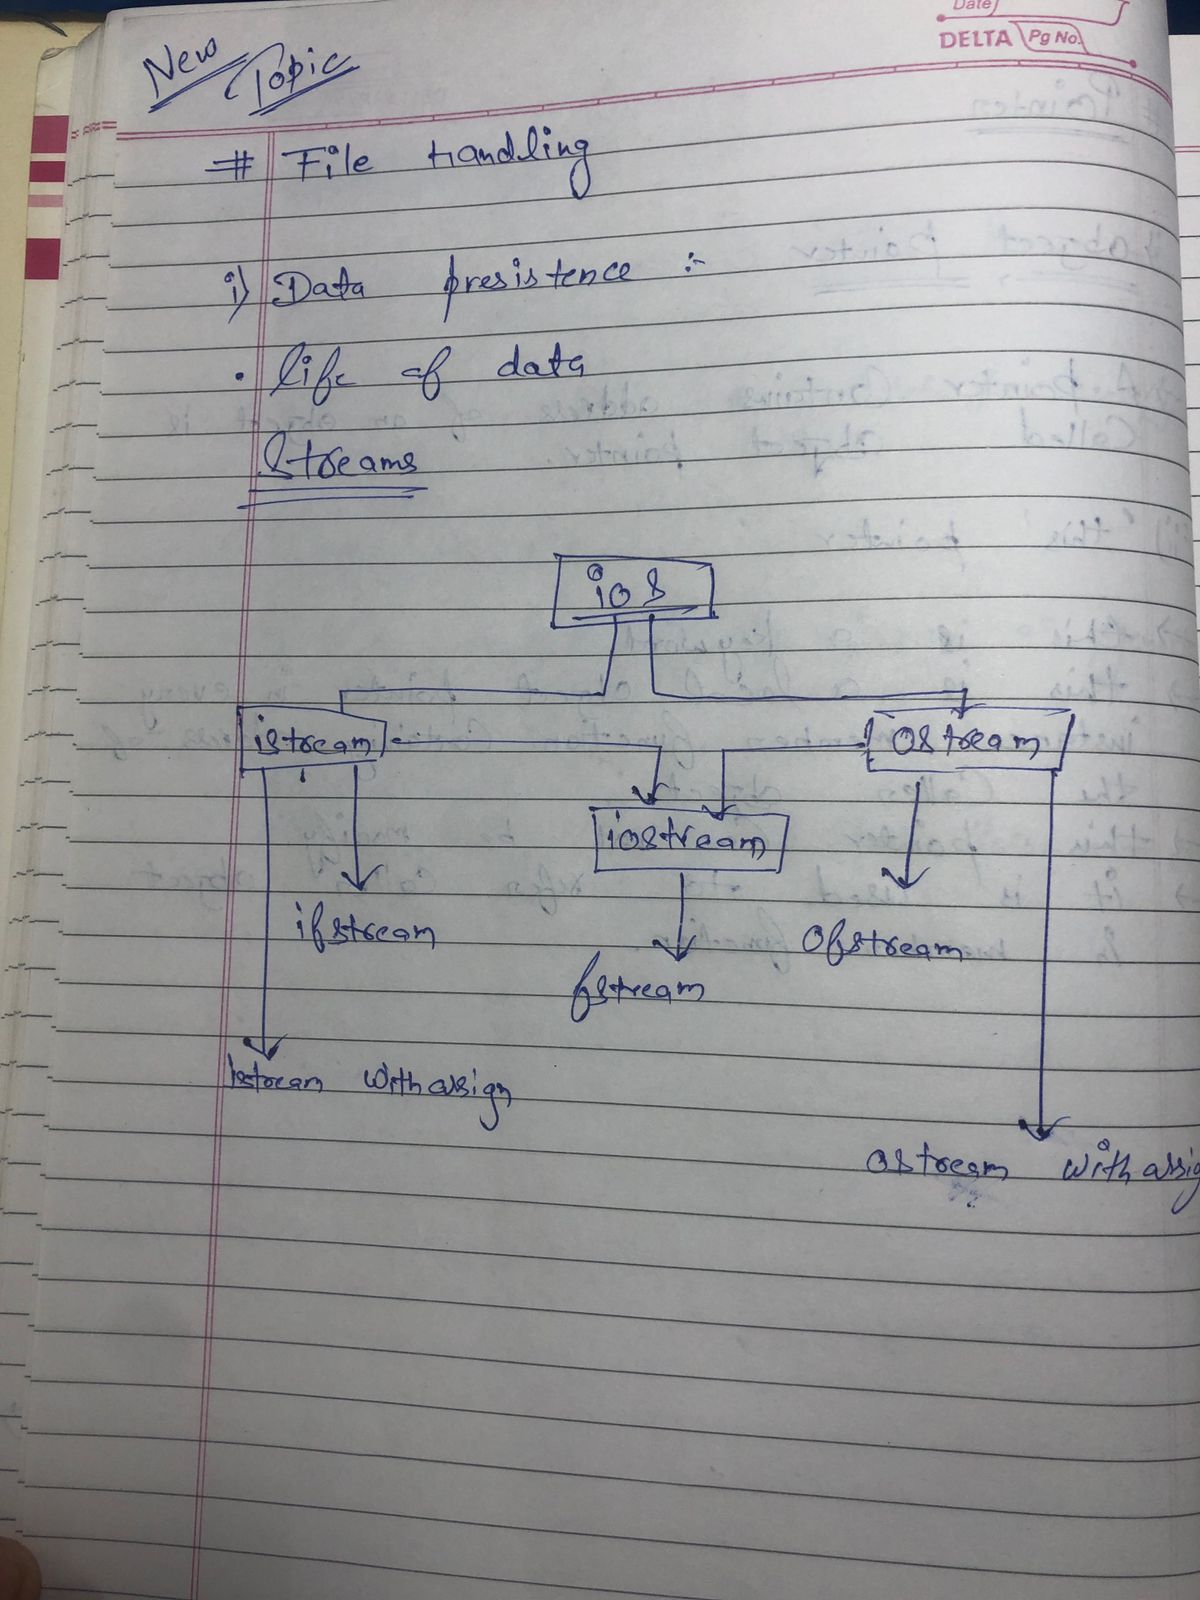 Date
DELTA Pg No.
New Topic
# File Handling
i) Data presistence :-
• life of data
Streams
ios
istream
ostream
iostream
ifstream
ofstream
fstream
istream withassign
ostream withassig